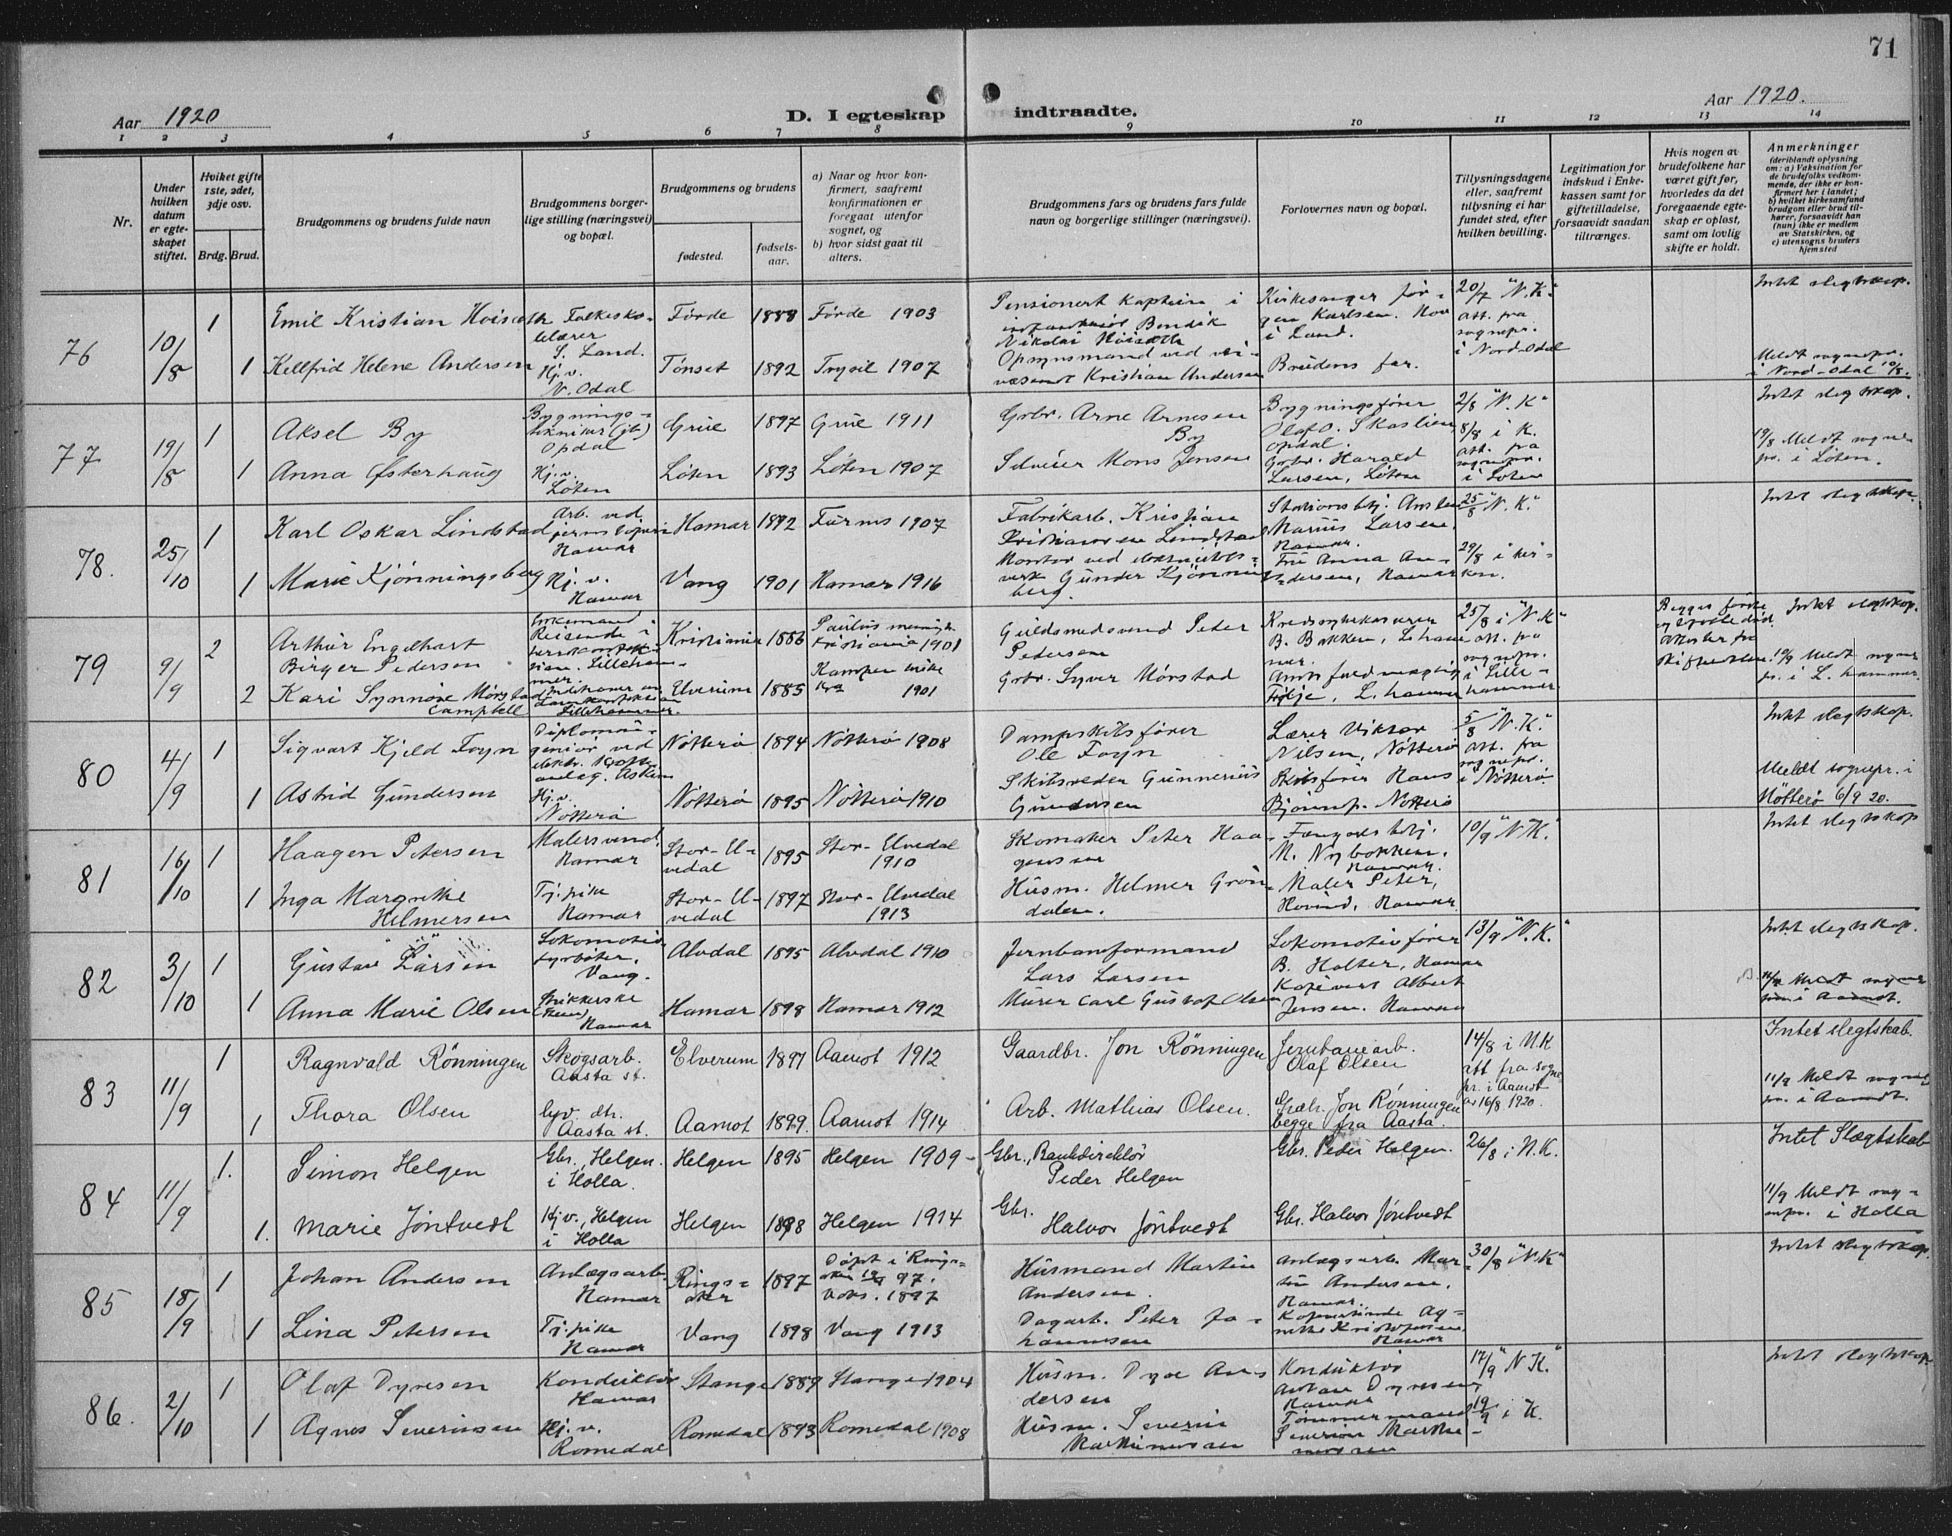 71
Aar 1920
D. I egteskap indtraadte.
Aar 1920.
1 2 3 4 5 6 7 8 9 10 11 12 13 14
Nr.
Under hvilken datum er egteskapet stiftet.
Hvilket gifte 1ste, 2det, 3dje osv.
Brdg. Brud.
Brudgommens og brudens fulde navn
Brudgommens borgerlige stilling (næringsvei) og bopæl.
Brudgommens og brudens
fødested.
fødselsaar.
a) Naar og hvor konfirmert, saafremt konfirmationen er foregaat utenfor sognet, og
b) hvor sidst gaat til alters.
Brudgommens fars og brudens fars fulde navn og borgerlige stillinger (næringsvei).
Forlovernes navn og bopæl.
Tillysningsdagene eller, saafremt tillysning ei har fundet sted, efter hvilken bevilling.
Legitimation for indskud i Enkekassen samt for giftetilladelse, forsaavidt saadan tiltrænges.
Hvis nogen av brudefolkene har været gift før, hvorledes da det foregaaende egteskap er opløst, samt om lovlig skifte er holdt.
Anmerkninger
(deriblandt oplysning om: a) Vaksination for de brudefolks vedkommende, der ikke er konfirmert her i landet; b) hvilket kirkesamfund brudgom eller brud tilhører, forsaavidt han (hun) ikke er medlem av Statskirken, og c) utensogns bruders hjemsted
76 10/8 1 Emil Kristian Hoiseth Folkeskolelærer S. Land. Førde 1888 Førde 1903 Pensionert kaptein i Bendik Nikolai Hoiseth Kirkesanger Jørgen Karlsen. Nor i Land. 20/7 "N.K." att. fra sognepr. i Nord-Odal Intet slegtskap.
1 Kellfrid Helene Andersen Hj.v. N. Odal Tønset 1892 Trysil 1907 Opsynsmand ved Kristian Andersen Brudens far. Meldt sognepr. i Nord-Odal 10/8.
77 19/8 1 Aksel By Bygningstekniker Opdal Grue 1897 Grue 1911 Grbr. Arne Arnesen By Bygningsfører Olaf O. Skaslien, Opdal. 2/8 "N.K" 8/8 i K. att. fra sognepr. i Løten Intet slegtskap.
1 Anna Østerhaug Hj.v. Løten Løten 1893 Løten 1907 Selveier Mons Jensen Grbr. Harald Larsen, Løten 19/8 Meldt sognepr. i Løten.
78. 25/10 1 Karl Oskar Lindstad Arb. ved Hamar Hamar 1892 Furnes 1907 Fabrikarb. Kristian Kristiansen Lindstad Stationsbtj. Marius Larsen, Hamar. 25/8 "N.K." Intet slegtskap.
1 Marie Kjønningsberg Hj.v. Hamar Vang 1901 Hamar 1916 Montør ved elektricitetsverk Gunder Kjønningsberg. Fru Anna Andersen, Hamar 29/8 i kirken.
79 9/9 2 Arthur Engelhart Birger Pedersen Enkemand Reisende i Lillehammer. Kristiania 1886 Paulus menigh. Kristiania 1901 Guldsmedsvend Peter Pedersen B. Bakken, L.hammer. 25/8 i "N.K" att. fra sognepr. i Lillehammer Begges første døde Intet slegtskap.
2 Kari Synnøve Mørstad Campbell Lillehammer. Elverum 1885 Kampen kirke Kra 1901 Grbr. Syver Mørstad Amtsfuldmægtig L.hammer 10/9 Meldt sognepr. i L.hammer.
80 4/9 1 Sigvart Kjeld Foyn Diplomingeniør ved elektr. anlæg. Askim Nøtterø 1894 Nøtterø 1908 Dampskibsfører Ole Foyn Lærer Viktor Nilsen, Nøtterø 5/8 "N.K." att. fra sognepr. i Nøtterø Intet slegtskap.
1 Astrid Gundersen Hj.v. Nøtterø Nøtterø 1895 Nøtterø 1910 Skibsreder Gunnerius Gundersen Skibsfører Hans Nøtterø Meldt sognepr. i Nøtterø 6/9 20.
81 16/10 1 Haagen Petersen Malersvend, Hamar Stor-Elvedal 1895 Stor-Elvedal 1910 Skomaker Peter Haagensen Fængselsbtj. M. Nybakken, Hamar. 10/9 "N.K." Intet slegtskap
1 Inga Margrethe Helmersen Tj.pike Hamar Stor-Elvedal 1897 Stor-Elvedal 1913 Husm. Helmer Grøndalen. Maler Peter, Hovind, Hamar
82 3/10 1 Gustav Larsen Lokomotivfyrbøter, Vang. Alvdal 1895 Alvdal 1910 Jernbanformand Lars Larsen Lokomotivfører B. Halter, Hamar 13/9 "N.K." Intet slegtskap.
1 Anna Marie Olsen Strikkerske Hamar Hamar 1898 Hamar 1912 Murer Carl Gustaf Olsen Albert Jensen. Hamar
83 11/9 1 Ragnvald Rønningen Skogsarb. Aasta st. Elverum 1897 Aamot 1912 Gaardbr. Jon Rønningen Jernbanearb. Olaf Olsen 14/8 i N.K att fra sognepr. i Aamot av 16/8 1920. Intet slegtskab.
1 Thora Olsen Aasta st. Aamot 1899. Aamot 1914 Arb. Mathias Olsen. Jon Rønningen begge fra Aasta. 11/9 Meldt sognepr. i Aamot.
84 11/9 1. Simon Helgen Gbr., Helgen. i Holla. Helgen 1895 Helgen 1909 Gbr., Bankdirektør Peder Helgen Gbr. Peder Helgen. 26/8 i N.K. Intet Slægtskab
1. Marie Jøntvedt Hj.v., Helgen i Holla Helgen 1898 Helgen 1914 Gbr. Halvor Jøntvedt Gbr. Halvor Jøntvedt 11/9 Meldt sognepr. i Holla
85 18/9 1 Johan Andersen Anlægsarb. Hamar Ringsaker 1897 Døpt i Ringsaker 97. Vaks. 1897 Husmand Martin Andersen. Anlægsarb. Martin Andersen, Hamar. 30/8 "N.K" Intet slegtskap.
1 Lina Petersen Tj.pike Hamar Vang 1898 Vang 1913 Dagarb. Peter Johannessen Agnethe Kristoffersen, Hamar
86. 2/10 1 Olaf Dyresen Konduktør Hamar Stange 1889 Stange 1904 Husm. Dyre Andersen Konduktør Dyresen, Hamar 17/9 "N.K." Intet slegtskap
1 Agnes Severinsen Hj.v. Romedal Romedal 1893 Romedal 1908 Husm. Severin Mathinussen Tømmermand Severin 19/9 i K.